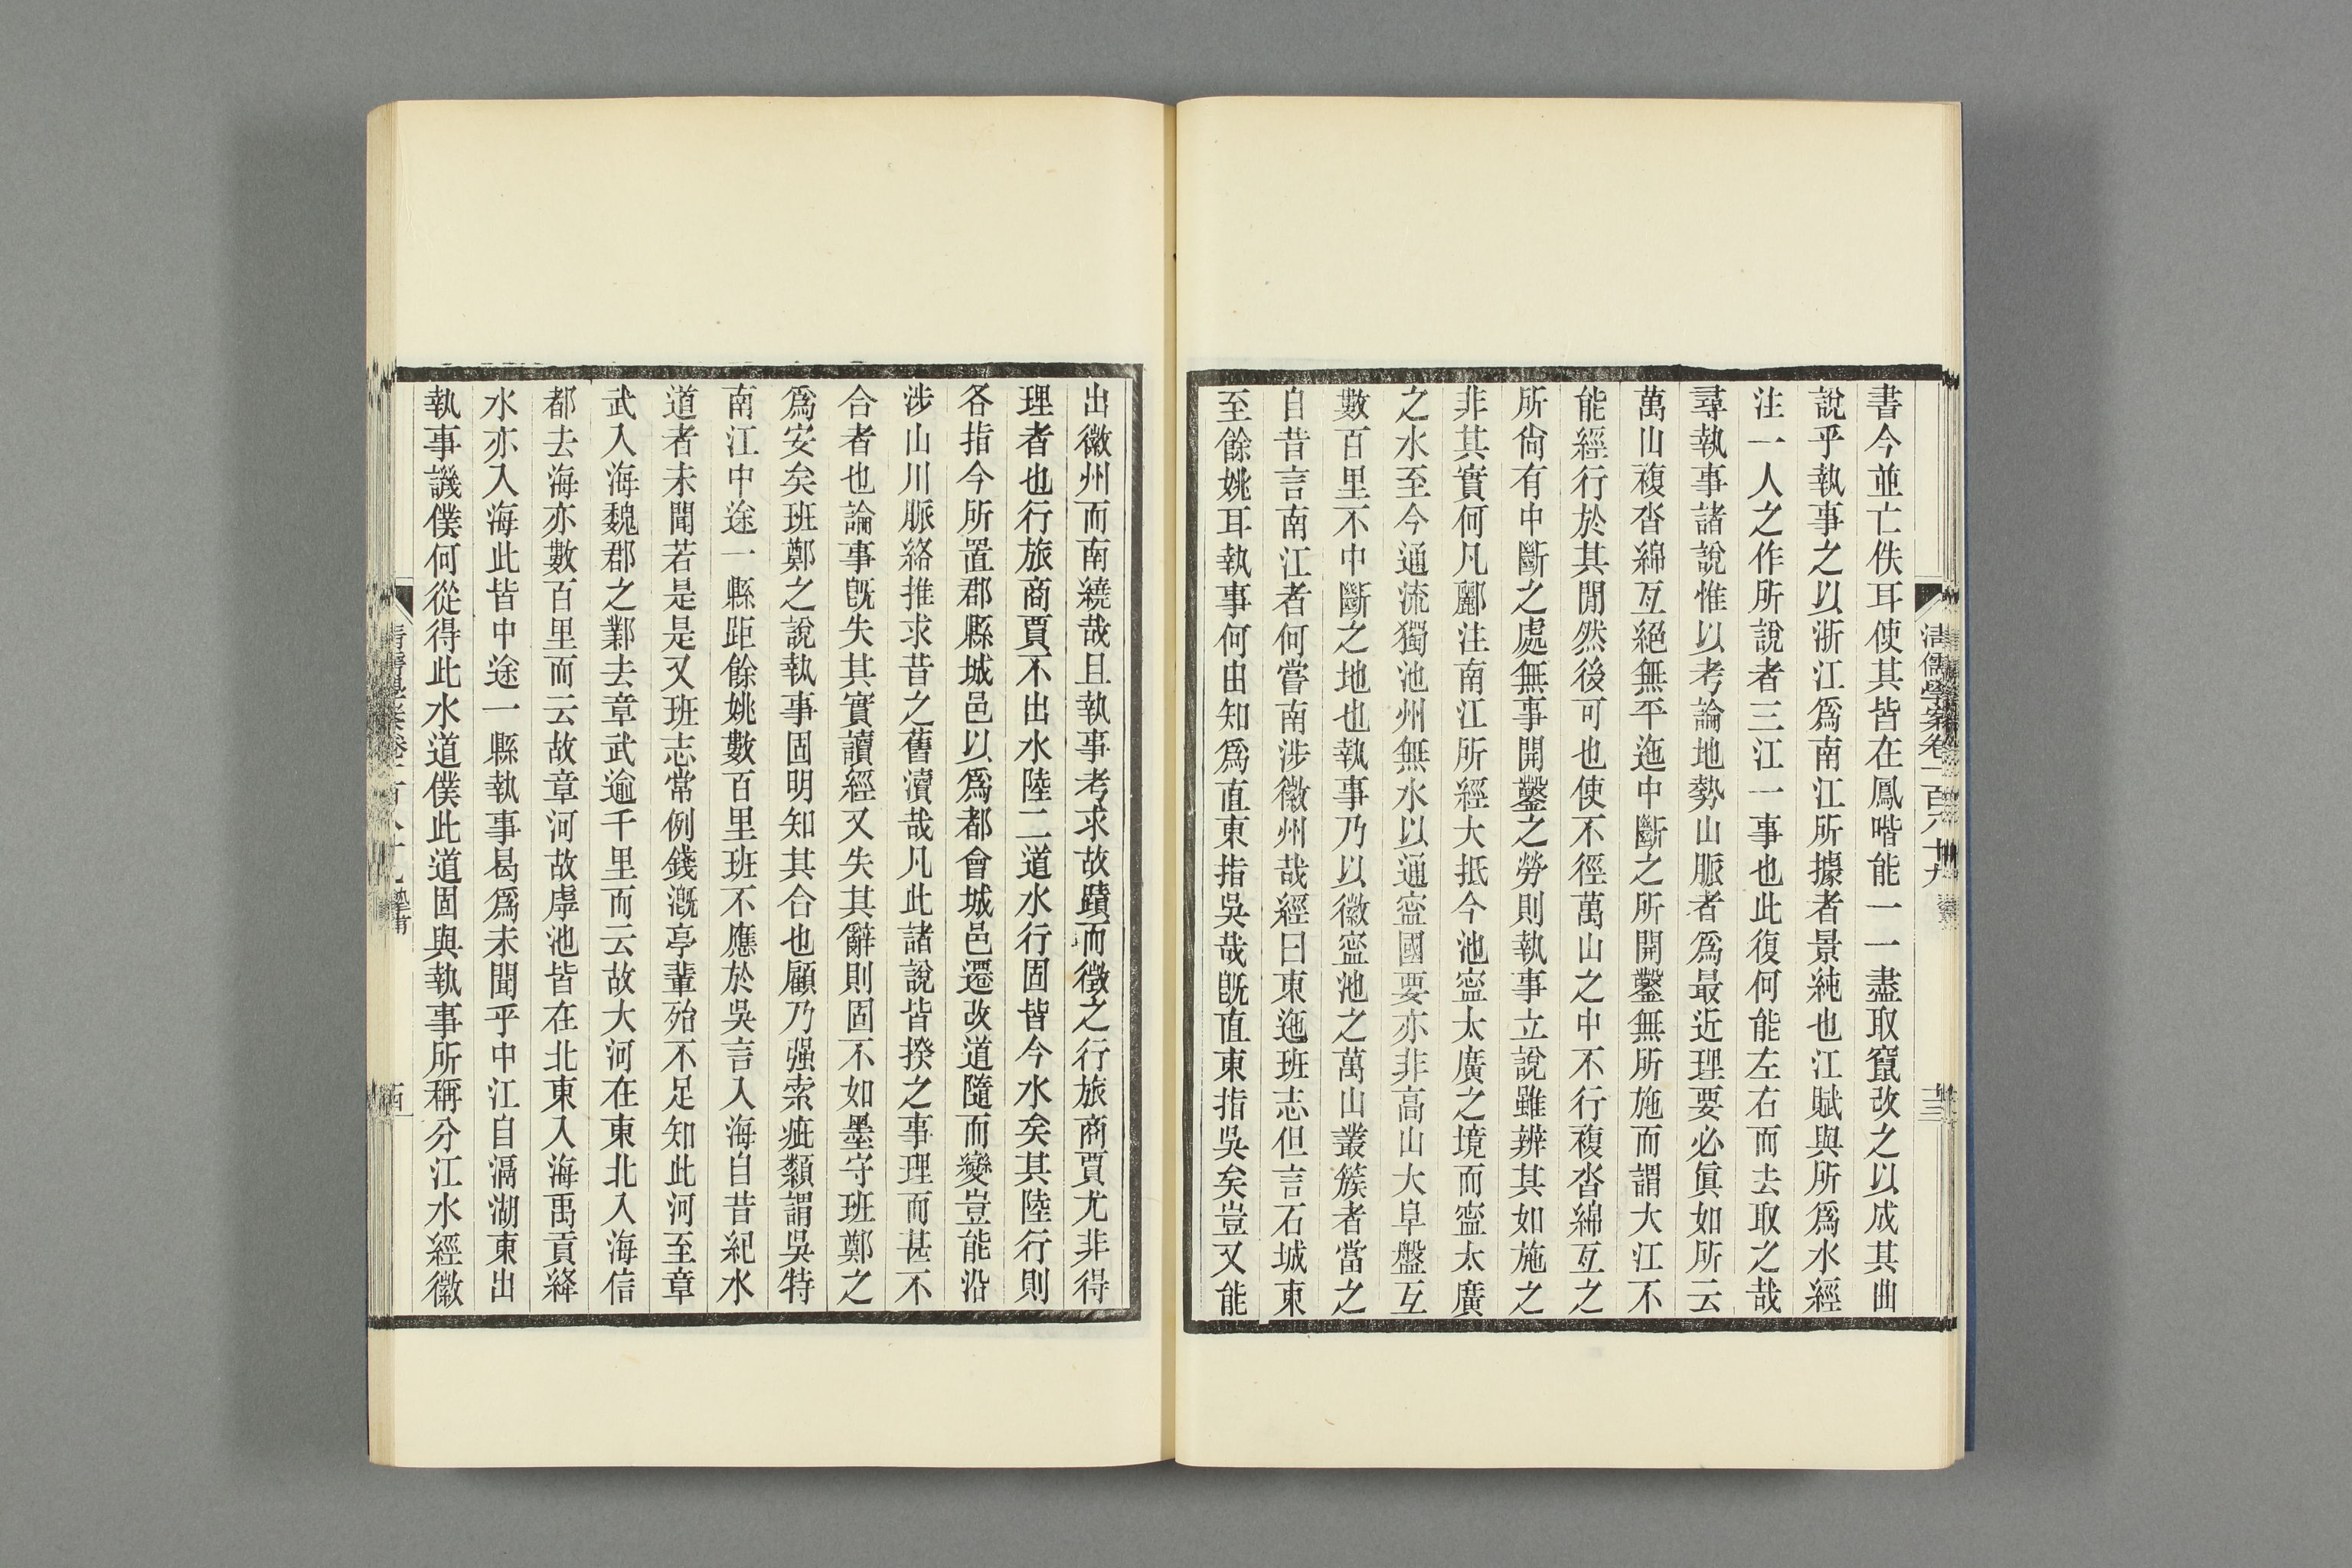 清儒學案卷一百八十九
十三
書今並亡佚耳使其皆在鳳喈能一一盡取竄改之以成其曲
說乎執事之以浙江爲南江所據者景純也江賦與所爲水經
注一人之作所說者三江一事也此復何能左右而去取之哉
尋執事諸說惟以考論地勢山脈者爲最近理要必眞如所云
萬山複沓綿亙絕無平迤中斷之所開鑿無所施而謂大江不
能經行於其閒然後可也使不徑萬山之中不行複沓綿亙之
所尙有中斷之處無事開鑿之勞則執事立說雖辨其如施之
非其實何凡酈注南江所經大抵今池寍太廣之境而寍太廣
之水至今通流獨池州無水以通寍國要亦非高山大阜盤互
數百里不中斷之地也執事乃以徽寍池之萬山叢簇者當之
自昔言南江者何嘗南涉徽州哉經曰東迤班志但言石城東
至餘姚耳執事何由知爲直東指吳哉旣直東指吳矣豈又能
出徽州而南繞哉且執事考求故蹟而徵之行旅商賈尤非得
理者也行旅商賈不出水陸二道水行固皆今水矣其陸行則
各指今所置郡縣城邑以爲都會城邑遷改道隨而變豈能沿
涉山川脈絡推求昔之舊瀆哉凡此諸說皆揆之事理而甚不
合者也論事旣失其實讀經又失其辭則固不如墨守班鄭之
爲安矣班鄭之說執事固明知其合也顧乃强索疵纇謂吳特
南江中途一縣距餘姚數百里班不應於吳言入海自昔紀水
道者未聞若是是又班志常例錢漑亭輩殆不足知此河至章
武入海魏郡之鄴去章武逾千里而云故大河在東北入海信
都去海亦數百里而云故章河故虖池皆在北東入海禹貢絳
水亦入海此皆中途一縣執事曷爲未聞乎中江自滆湖東出
執事譏僕何從得此水道僕此道固與執事所稱分江水經徽